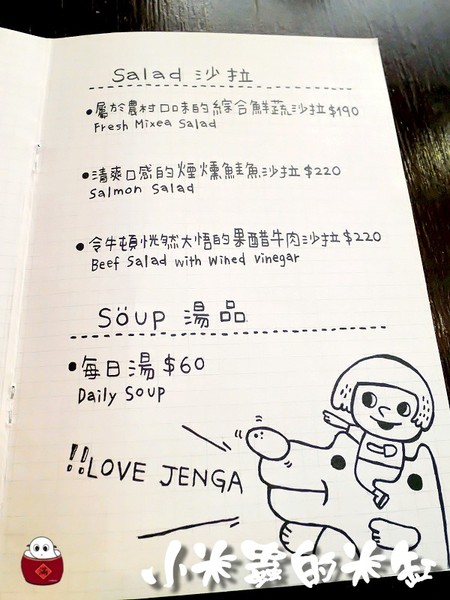 Salad 沙拉
•屬於農村口味的綜合鮮蔬沙拉$190
Fresh Mixea Salad
•清爽口感的煙燻鮭魚沙拉$220
Salmon Salad
•令牛頓恍然大悟的果醋牛肉沙拉$220
Beef Salad with Wined vinegar
Söup 湯品
•每日湯$60
Daily Soup
!!LOVE JENGA
小米蟲的米缸